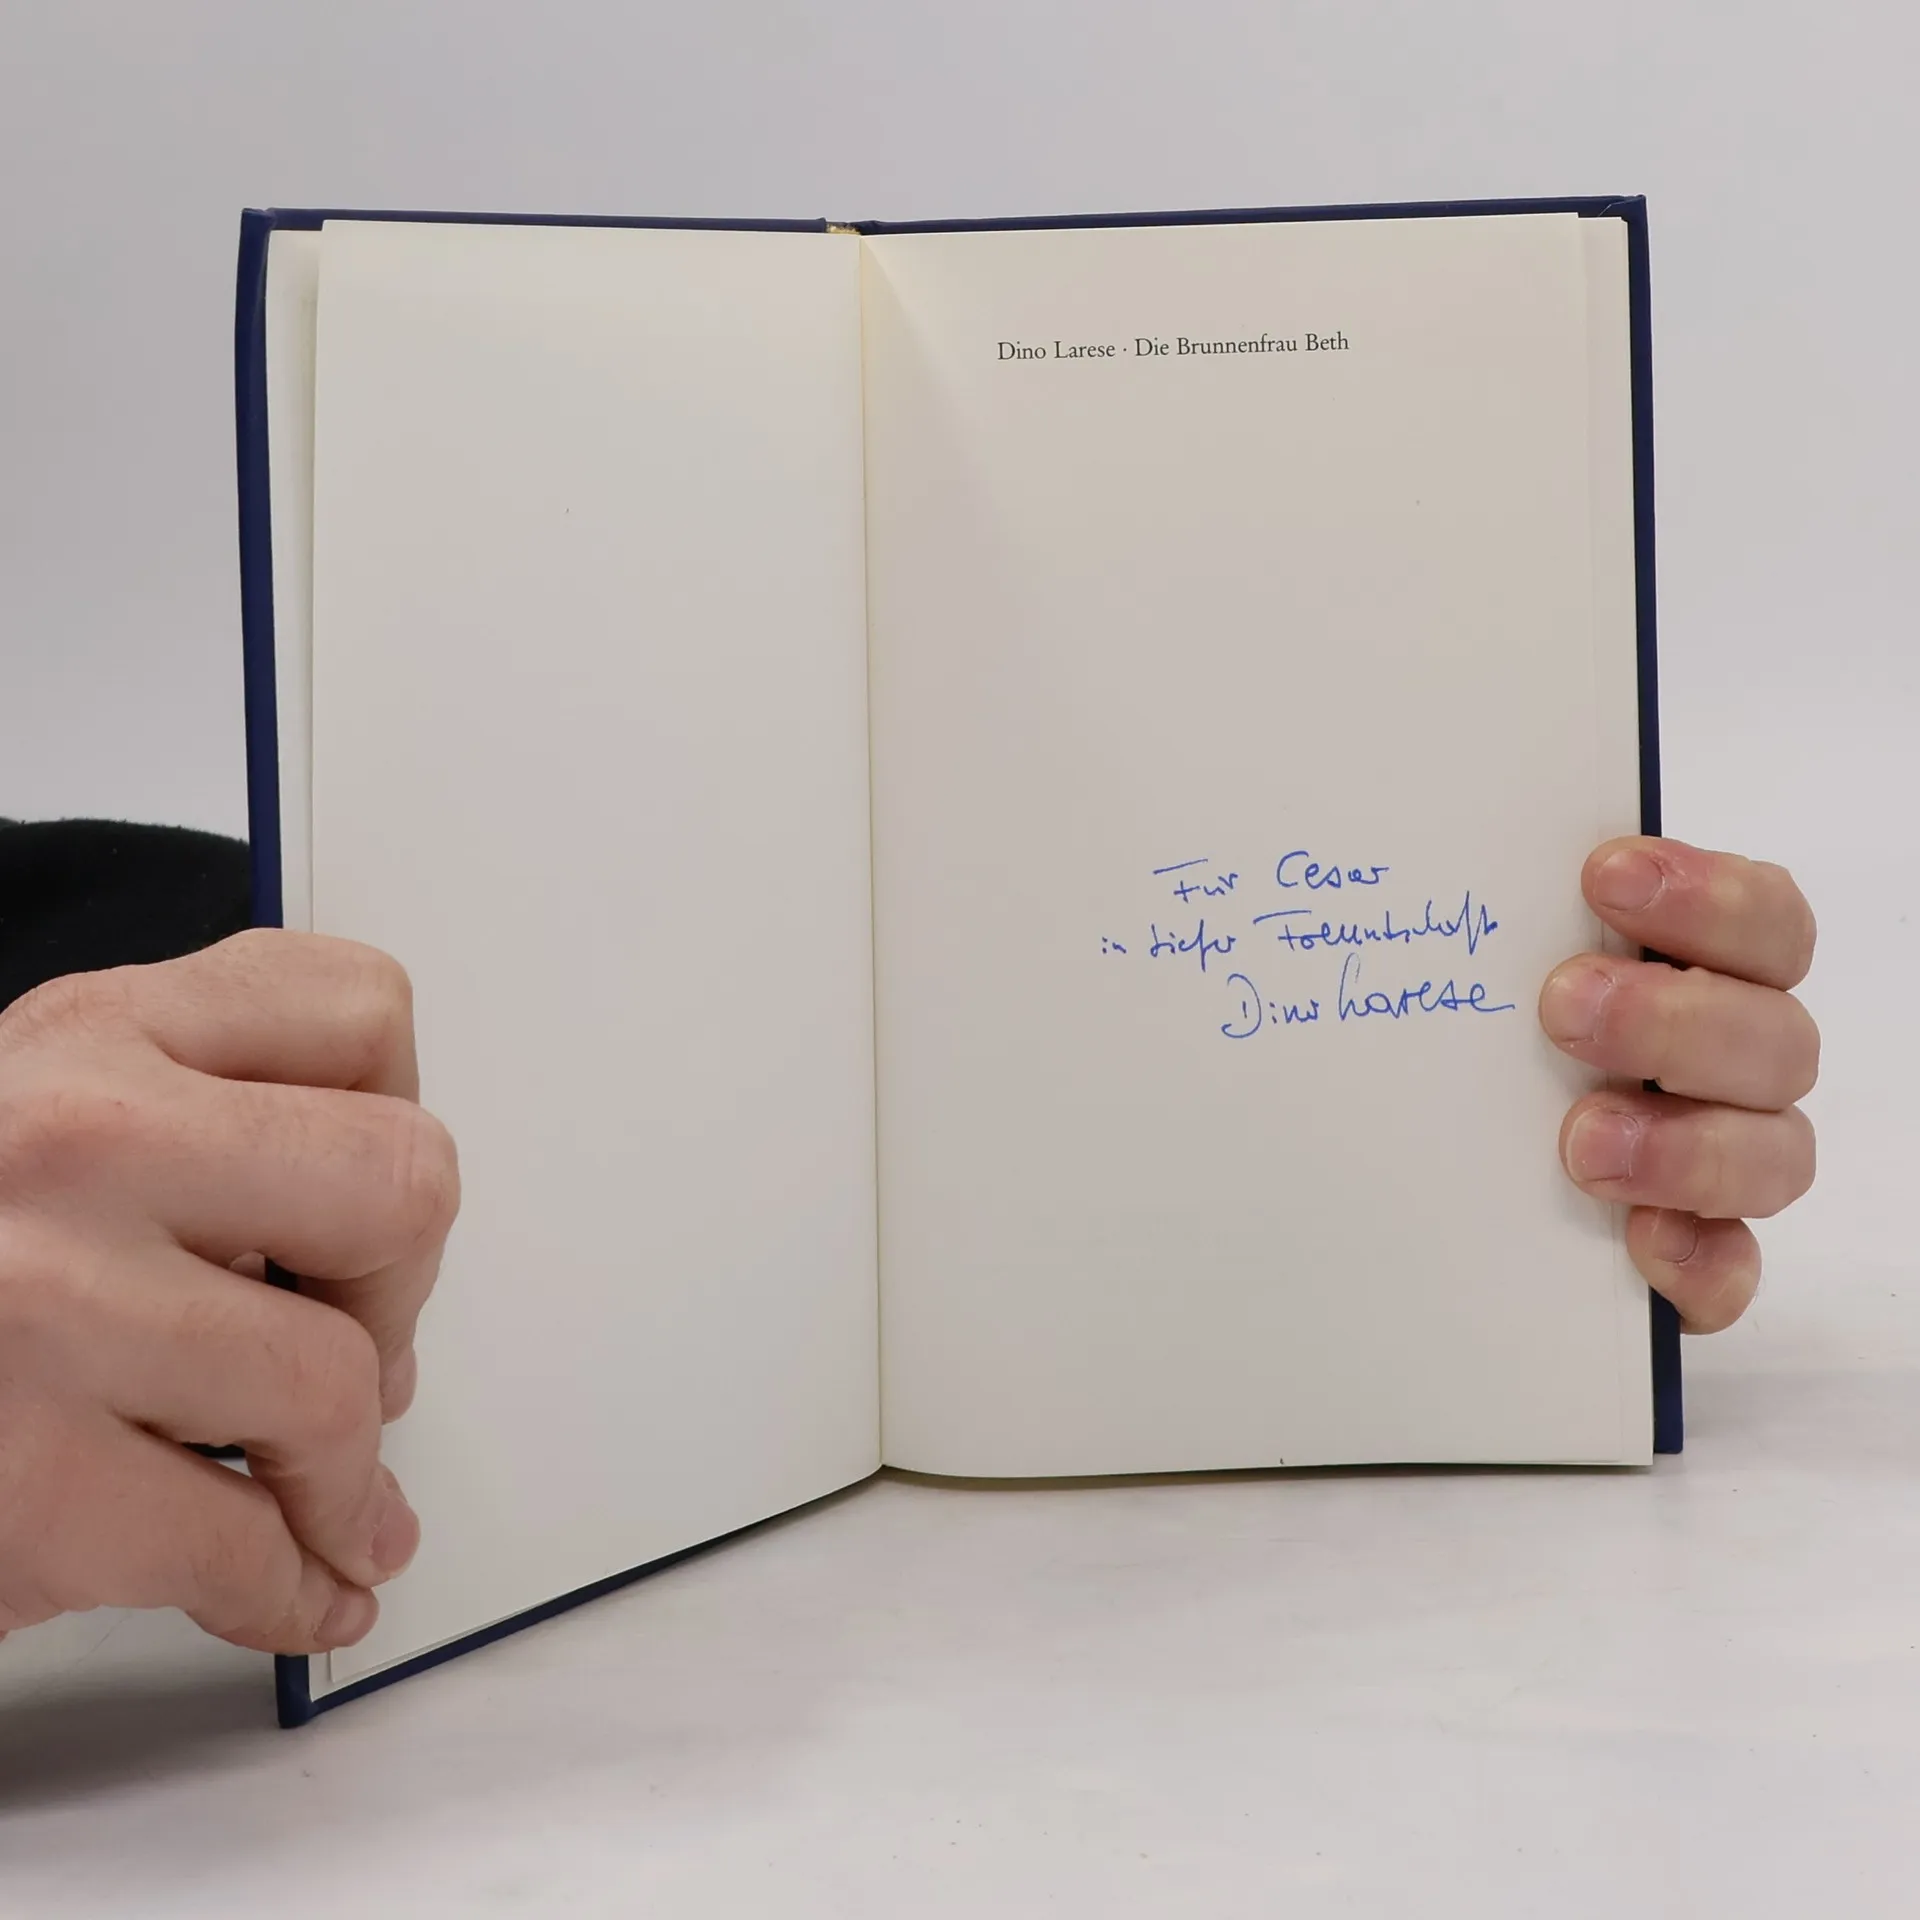 Dino Larese · Die Brunnenfrau Beth
Für Cesar
in tiefer Freundschaft
Dino Larese